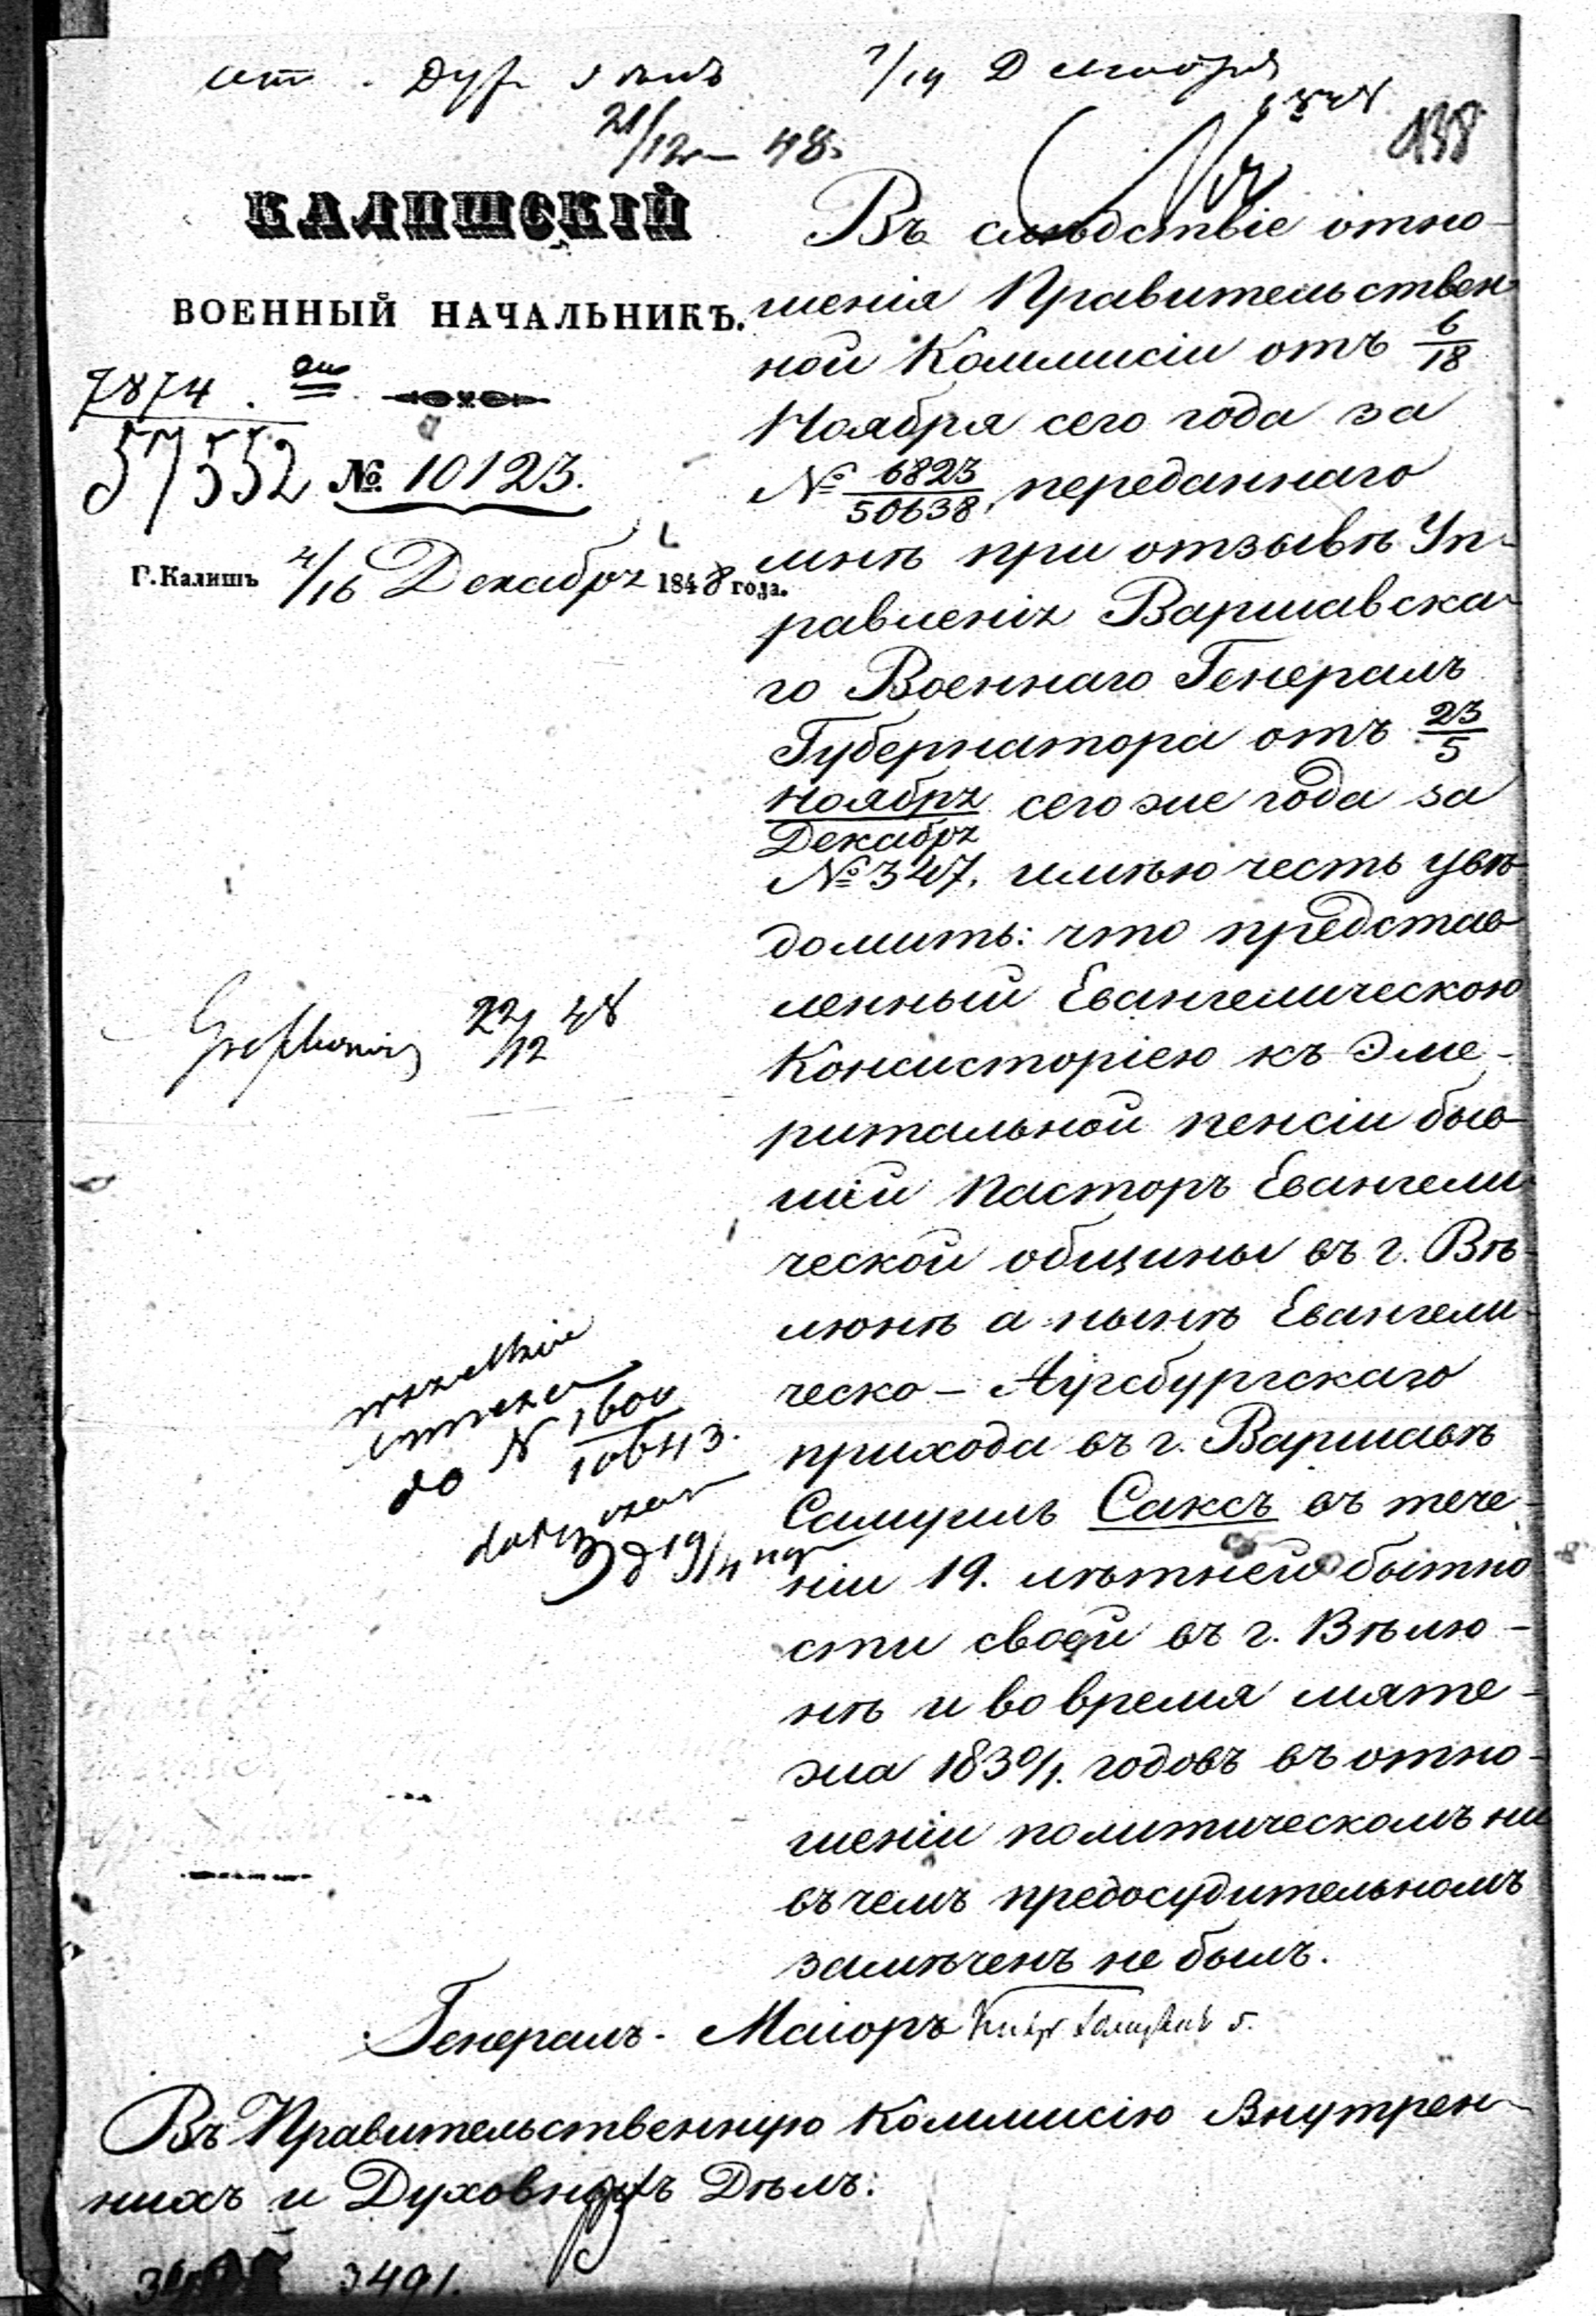 7/19 Декабря
1848
21/12 — 48
138
КАЛИШСКІЙ
ВОЕННЫЙ НАЧАЛЬНИКЪ.
7874.
57552 № 10123.
Г. Калишь 4/16 Декабря 1848 года.
Въ слѣдствіе отно-
шенія Правительствен-
ной Коммисіи отъ 6/18
Ноября сего года за
№ 6823/50638, переданнаго
мнѣ при отзывѣ Уп-
равленія Варшавска-
го Военнаго Генералъ
Губернатора отъ 23/5
Ноября/Декабря сего же года за
№ 347, имѣю честь увѣ-
домить: что представ-
ленный Евангелическою
Консисторіею къ Эме-
ритальной пенсіи быв-
шій Пасторъ Евангели-
ческой общины въ г. Вѣ-
люнѣ а нынѣ Евангели-
ческо-Аугсбургскаго
прихода въ г. Варшавѣ
Самуилъ Саксъ въ тече-
ніи 19. лѣтней бытно-
сти своей въ г. Вѣлю-
нѣ и во время мяте-
жа 1830/1. годовъ въ отно-
шеніи политическомъ ни
въ чемъ предосудительномъ
замѣченъ не былъ.
Генералъ-Маіоръ Князь Голицынъ 5.
22/12 48
wszelkie
annexa
do N 1600/10643.
Въ Правительственную Коммисію Внутрен-
нихъ и Духовныхъ Дѣлъ:
3491.